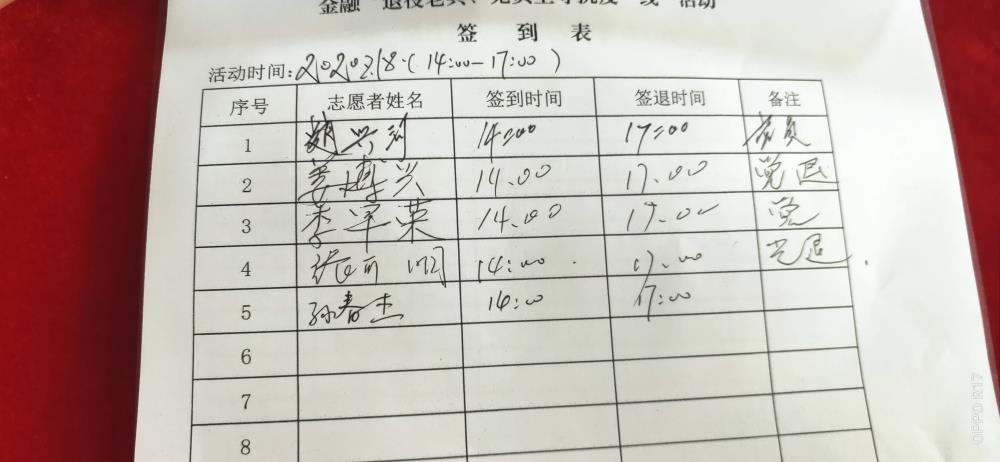 金融"退役老兵、党员
签 到 表
活动时间:2020.2.18.(14:00-17:00)
序号 志愿者姓名 签到时间 签退时间 备注
1 赵兴利 14:00 17:00 党员
2 姜博兴 14.00 17.00 党退
3 李军荣 14.00 17.00 党
4 14:00 17.00 党退
5 孙春杰 14:00 17:00
6
7
8
OPPO R17